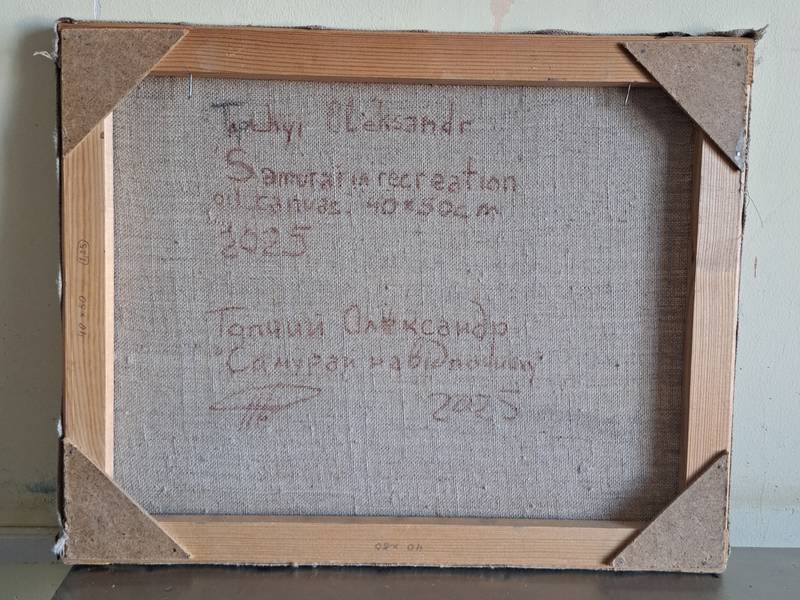 Topchyi Oleksandr
"Samurai in recreation"
oil, canvas, 40×50cm
2025
Топчий Олександр
"Самурай на відпочинку"
2025
40 × 50
40 × 50